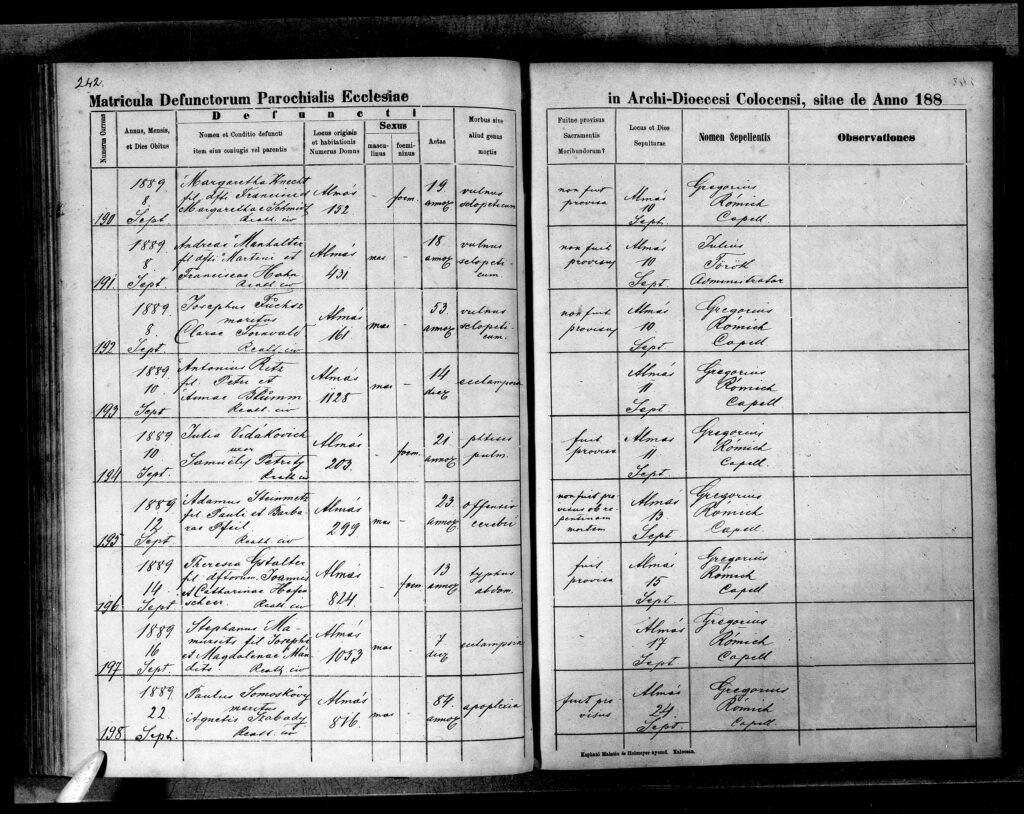 242.
Matricula Defunctorum Parochialis Ecclesiae
in Archi-Dioecesi Colocensi, sitae de Anno 188
Numerus Currens
Annus, Mensis,
et Dies Obitus
Defuncti
Nomen et Conditio defuncti
item ejus conjugis vel parentis
Locus originis
et habitationis
Numerus Domus
Sexus
mascu-
linus
foemi-
ninus
Aetas
Morbus sive
aliud genus
mortis
Fuitne provisus
Sacramentis
Moribundorum?
Locus et Dies
Sepulturae
Nomen Sepelientis
Observationes
190
1889
8
Sept
Margaretha Knecht
fil dfti Francisci et
Margarethae Schmidt
Almás
152
-
foem.
19
annor
vulnus
sclopeticum
non fuit
provisa
Almás
10
Sept.
Gregorius
Rómich
Capell
191
1889
8
Sept.
Andreas Manhalter
fil dfti Martini et
Franciscae Hahn
Almás
431
mas
-
18
annor
vulnus
sclopeti-
cum.
non fuit
provisus
Almás
10
Sept
Julius
Török
Administrator
192
1889
8.
Sept.
Josephus Fuchsz
maritus
Clarae
Almás
161.
mas
-
53
annor
vulnus
sclopeti-
cum.
non fuit
provisus
Almás
10
Sept
Gregorius
Rómich
Capell
193
1889
10
Sept
Antonius Retz
fil. Petri et
Annae
Almás
1128
mas
-
14
dier
eclampsia
Almás
11
Sept
Gregorius
Rómich
Capell
194
1889
10
Sept.
Julia Vidakovich
uxor
Samuelis
Almás
203.
-
foem.
21
annor
phtisis
pulm.
fuit
provisa
Almas
11
Sept.
Gregorius
Rómich
Capell.
195
1889
12
Sept
Adamus Steinmetz
fil Pauli et Barba-
rae Pfeil
Almás
299
mas
-
23
annor
offensio
cerebri
non fuit pro
visus ob re
pentinam
mortem
Almás
13
Sept
Gregorius
Rómich
Capell
196
1889
14
Sept
Theresia Gstalter
fil dftorum Joannis
et Catharinae Hafn
Almás
824.
-
foem
13
annor
typhus
abdom.
fuit
provisa
Almás
15
Sept.
Gregorius
Rómich
Capell
197
1889
16
Sept.
Stephanus Ma-
fil Josephi
et Magdalenae Mán-
dits
Almás
1053
mas
-
7
dier
eclampsia
Almás
17
Sept
Gregorius
Rómich
Capell
198
1889
22
Sept.
Paulus Somoskövy
maritus
Agnetis Szabady
Almás
876.
mas
-
84.
annor
apoplexia
fuit pro
visus
Almás
24
Sept.
Gregorius
Rómich
Capell.
Kapható Malatin és Holmeyer nyomd. Kalocsán.